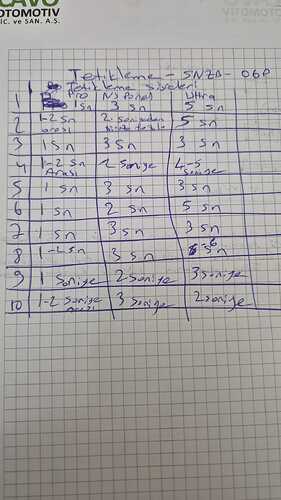 LAVO
OTOMOTİV
İC. ve SAN. A.Ş.
Tetikleme - SNZB-06P
Tetikleme süreleri
Pro NS Panel Ultra
1 1 sn 3 sn 5 sn
2 1-2 sn arası 2 saniyeden 5 sn
3 1 sn 3 sn 3 sn
4 1-2 sn Arası 2 saniye 4-5 saniye
5 1 sn 3 sn 3 sn
6 1 sn 2 sn 5 sn
7 1 sn 3 sn 3 sn
8 1-2 sn 3 sn 5-6 sn
9 1 saniye 2 saniye 3 saniye
10 1-2 saniye arası 3 saniye 2 saniye